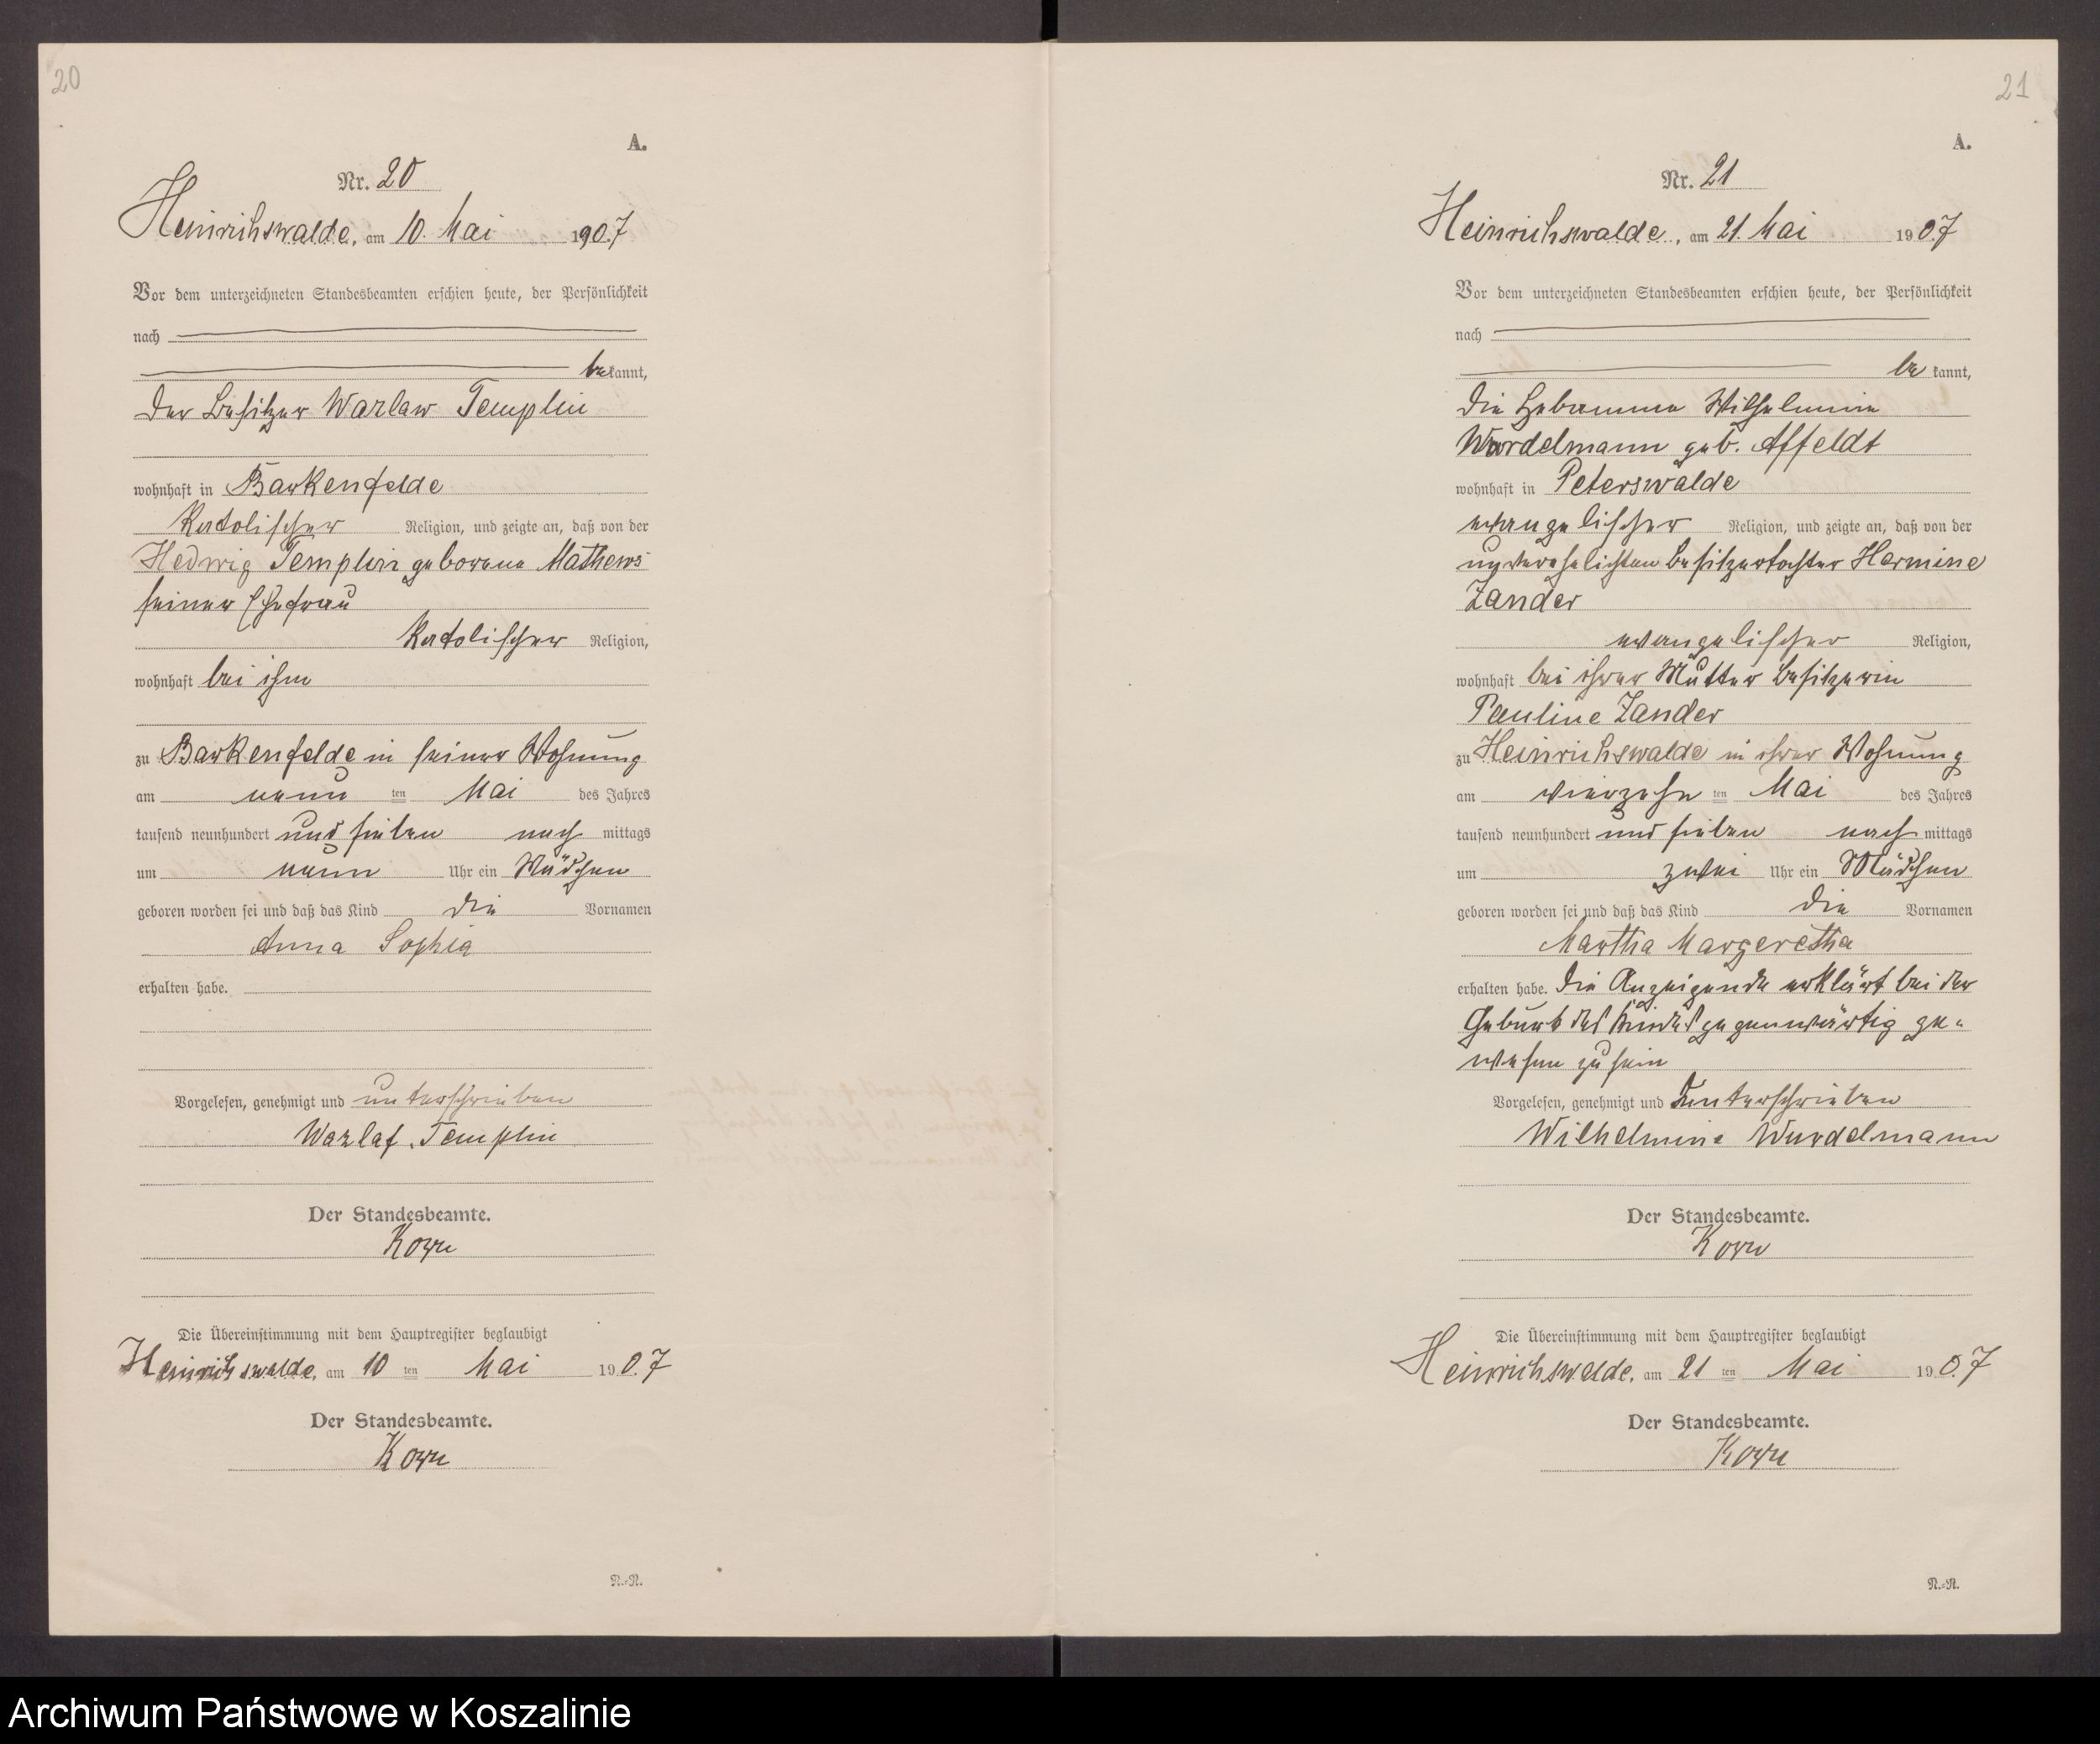 20
A.
Nr. 20
Heinrichswalde, am 10. Mai 1907
Vor dem unterzeichneten Standesbeamten erschien heute, der Persönlichkeit
nach
bekannt,
der Besitzer Wazlaw Templin
wohnhaft in Barkenfelde
Katolischer Religion, und zeigte an, daß von der
Hedwig Templin geborene Mathews
seiner Ehefrau
Katolischer Religion,
wohnhaft bei ihm
zu Barkenfelde in seiner Wohnung
am neun ten Mai des Jahres
tausend neunhundert und sieben nach mittags
um neun Uhr ein Mädchen
geboren worden sei und daß das Kind die Vornamen
Anna Sophia
erhalten habe.
Vorgelesen, genehmigt und unterschrieben
Wazlaf Templin
Der Standesbeamte.
Die Übereinstimmung mit dem Hauptregister beglaubigt
Heinrichswalde, am 10 ten Mai 1907
Der Standesbeamte.
N.-N.
21
A.
Nr. 21
Heinrichswalde, am 21. Mai 1907
Vor dem unterzeichneten Standesbeamten erschien heute, der Persönlichkeit
nach
be kannt,
die Hebamme Wilhelmine
Wurdelmann geb. Affeldt
wohnhaft in Peterswalde
evangelischer Religion, und zeigte an, daß von der
unverehelichten Besitzertochter Hermine
Zander
evangelischer Religion,
wohnhaft bei ihrer Mutter Besitzerin
Pauline Zander
zu Heinrichswalde in ihrer Wohnung
am vierzehn ten Mai des Jahres
tausend neunhundert und sieben nach mittags
um zwei Uhr ein Mädchen
geboren worden sei und daß das Kind die Vornamen
Martha Margeretha
erhalten habe. Die Anzeigende erklärt bei der
Geburt des Kindes gegenwärtig ge-
wesen zu sein
Vorgelesen, genehmigt und unterschrieben
Wilhelmine Wurdelmann
Der Standesbeamte.
Die Übereinstimmung mit dem Hauptregister beglaubigt
Heinrichswalde, am 21 ten Mai 1907
Der Standesbeamte.
N.-N.
Archiwum Państwowe w Koszalinie